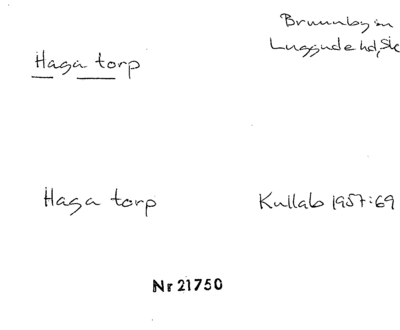 Haga torp
Brunnby sn
Luggude hd, Sk
Haga torp
Kullab 1957:69
Nr 21750